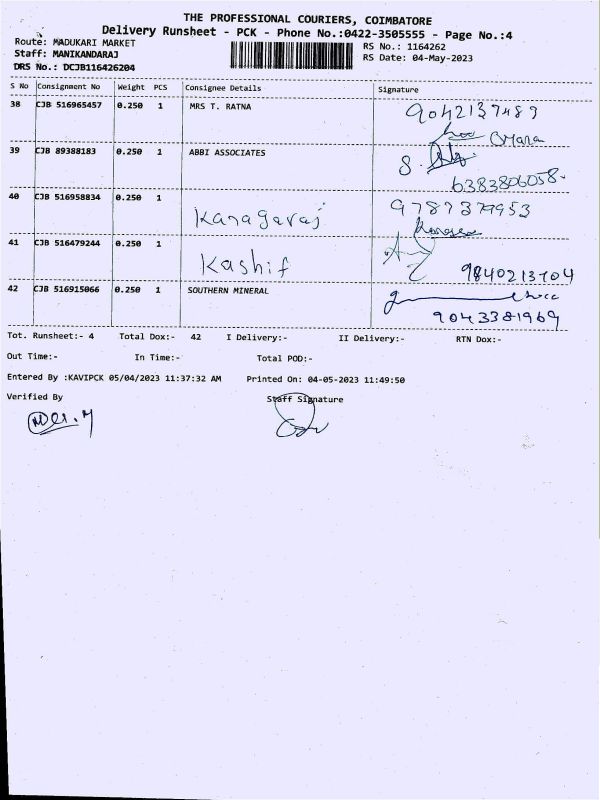 THE PROFESSIONAL COURIERS, COIMBATORE
Delivery Runsheet - PCK - Phone No.:0422-3505555 - Page No.:4
Route: MADUKARI MARKET RS No.: 1164262
Staff: MANIKANDARAJ RS Date: 04-May-2023
DRS No.: DCJB116426204
S No Consignment No Weight PCS Consignee Details Signature
38 CJB 516965457 0.250 1 MRS T. RATNA 9042137489
39 CJB 89388183 0.250 1 ABBI ASSOCIATES S.
6383806058-
40 CJB 516958834 0.250 1 Kanagaraj 9787379953
41 CJB 516479244 0.250 1 Kashif 9840213704
42 CJB 516915066 0.250 1 SOUTHERN MINERAL
9043381969
Tot. Runsheet:- 4 Total Dox:- 42 I Delivery:- II Delivery:- RTN Dox:-
Out Time:- In Time:- Total POD:-
Entered By :KAVIPCK 05/04/2023 11:37:32 AM Printed On: 04-05-2023 11:49:50
Verified By Staff Signature